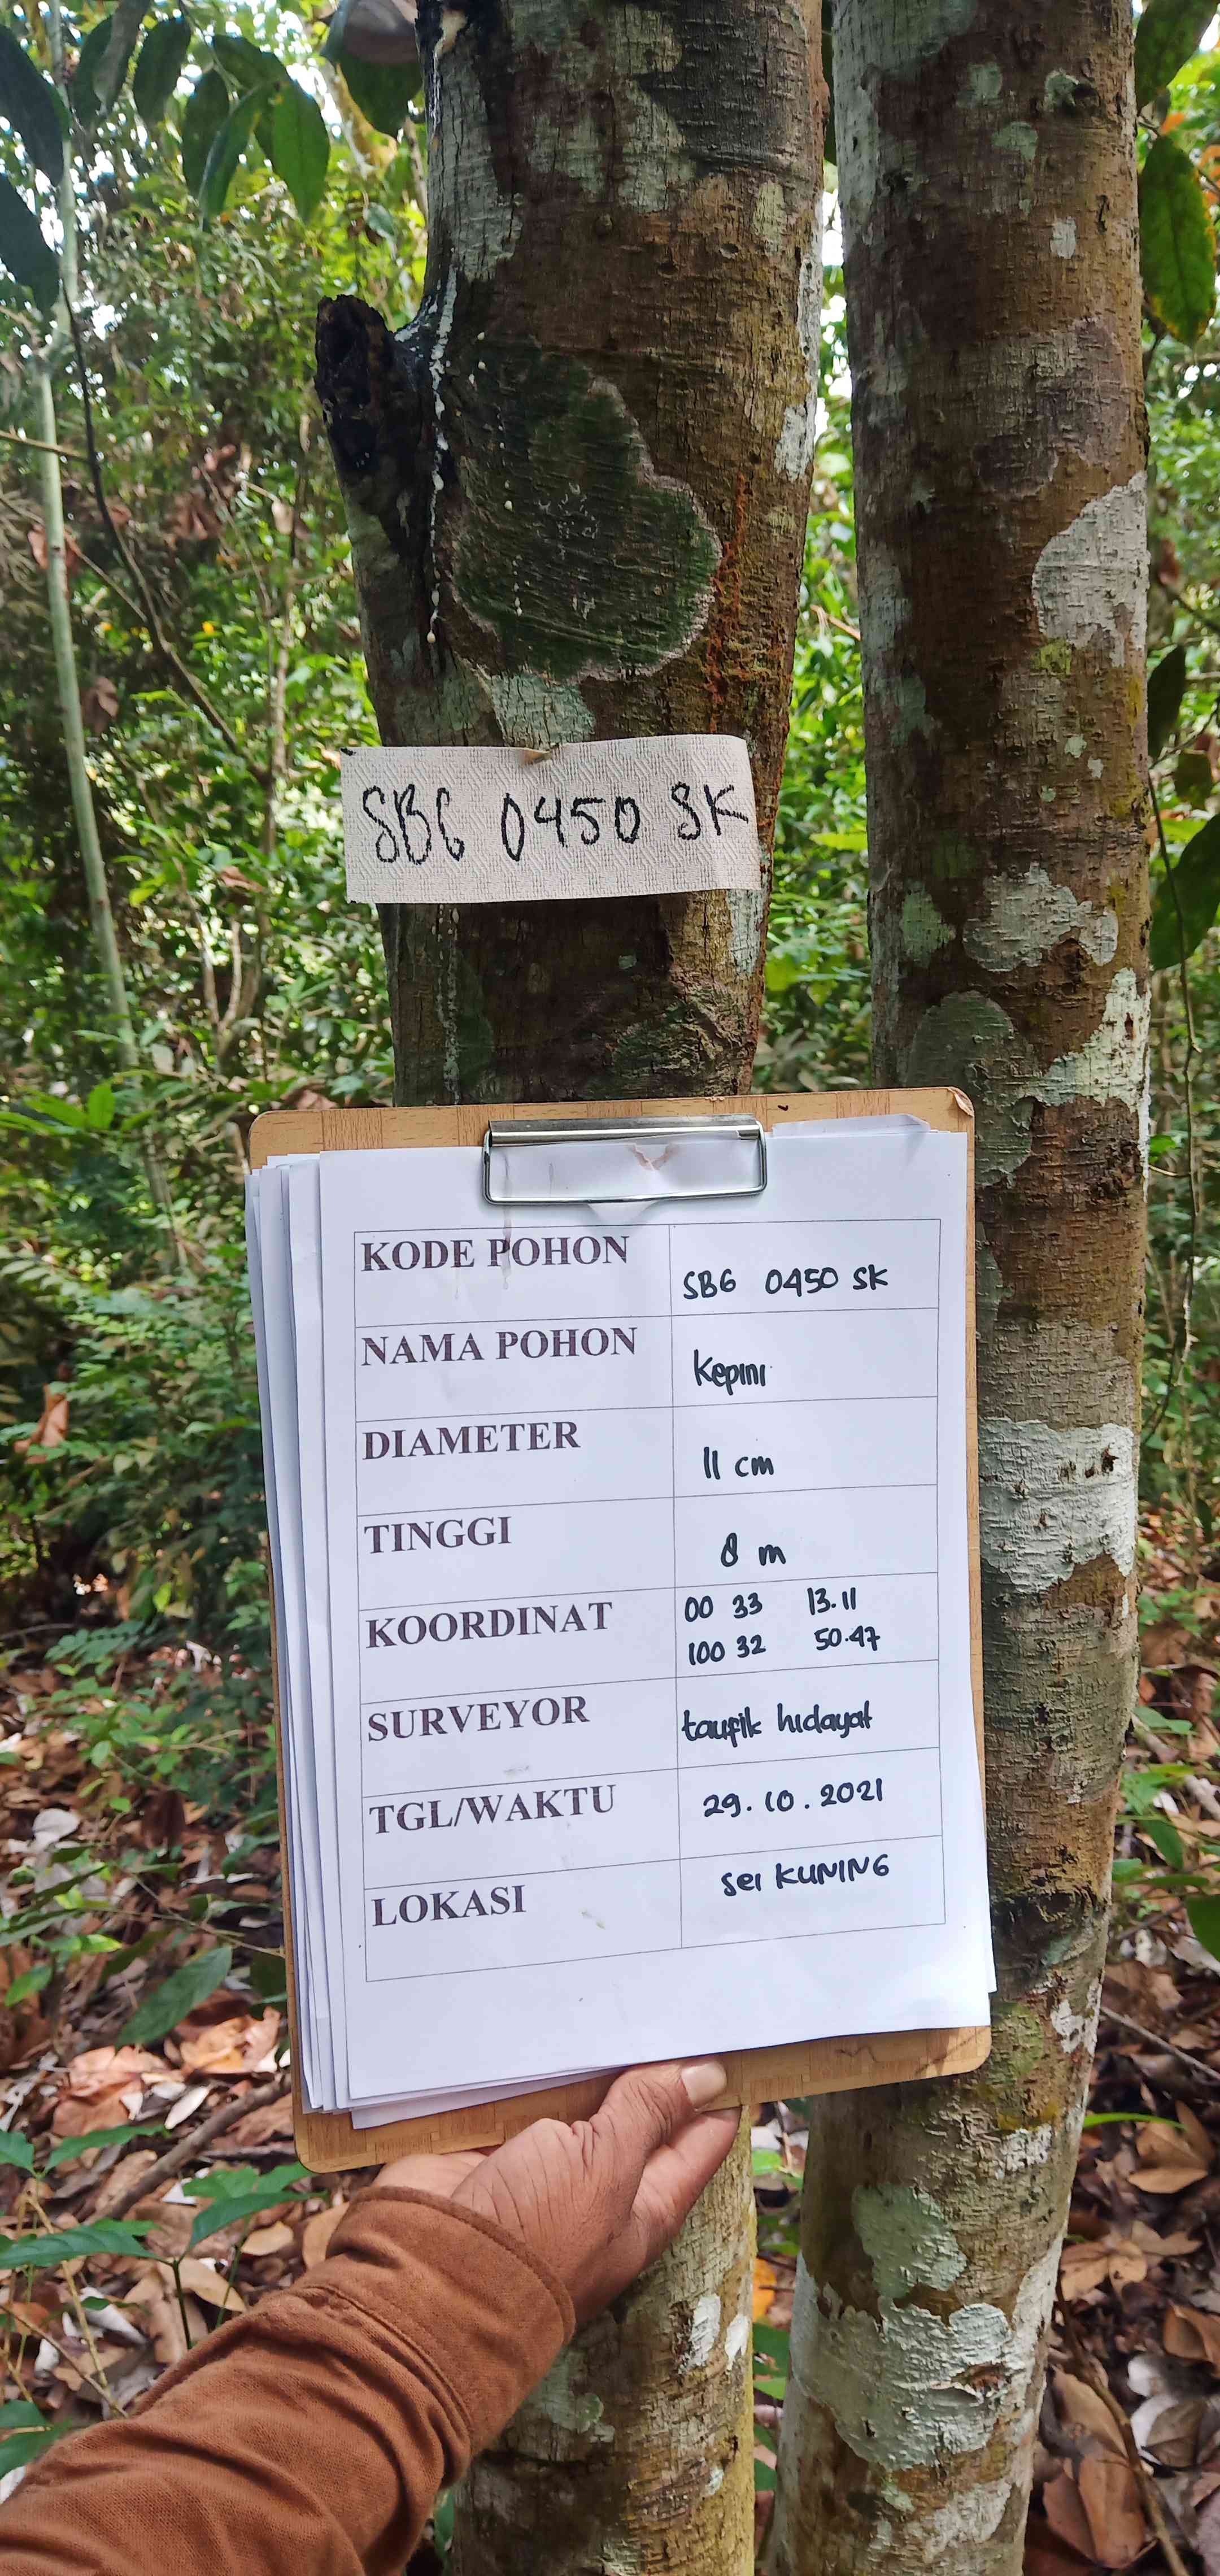 SBG 0450 SK
KODE POHON
SBG 0450 SK
NAMA POHON
Kepini
DIAMETER
11 cm
TINGGI
8 m
KOORDINAT
00 33 13.11
100 32 50.47
SURVEYOR
taufik hidayat
TGL/WAKTU
29.10.2021
LOKASI
Sei KUNING